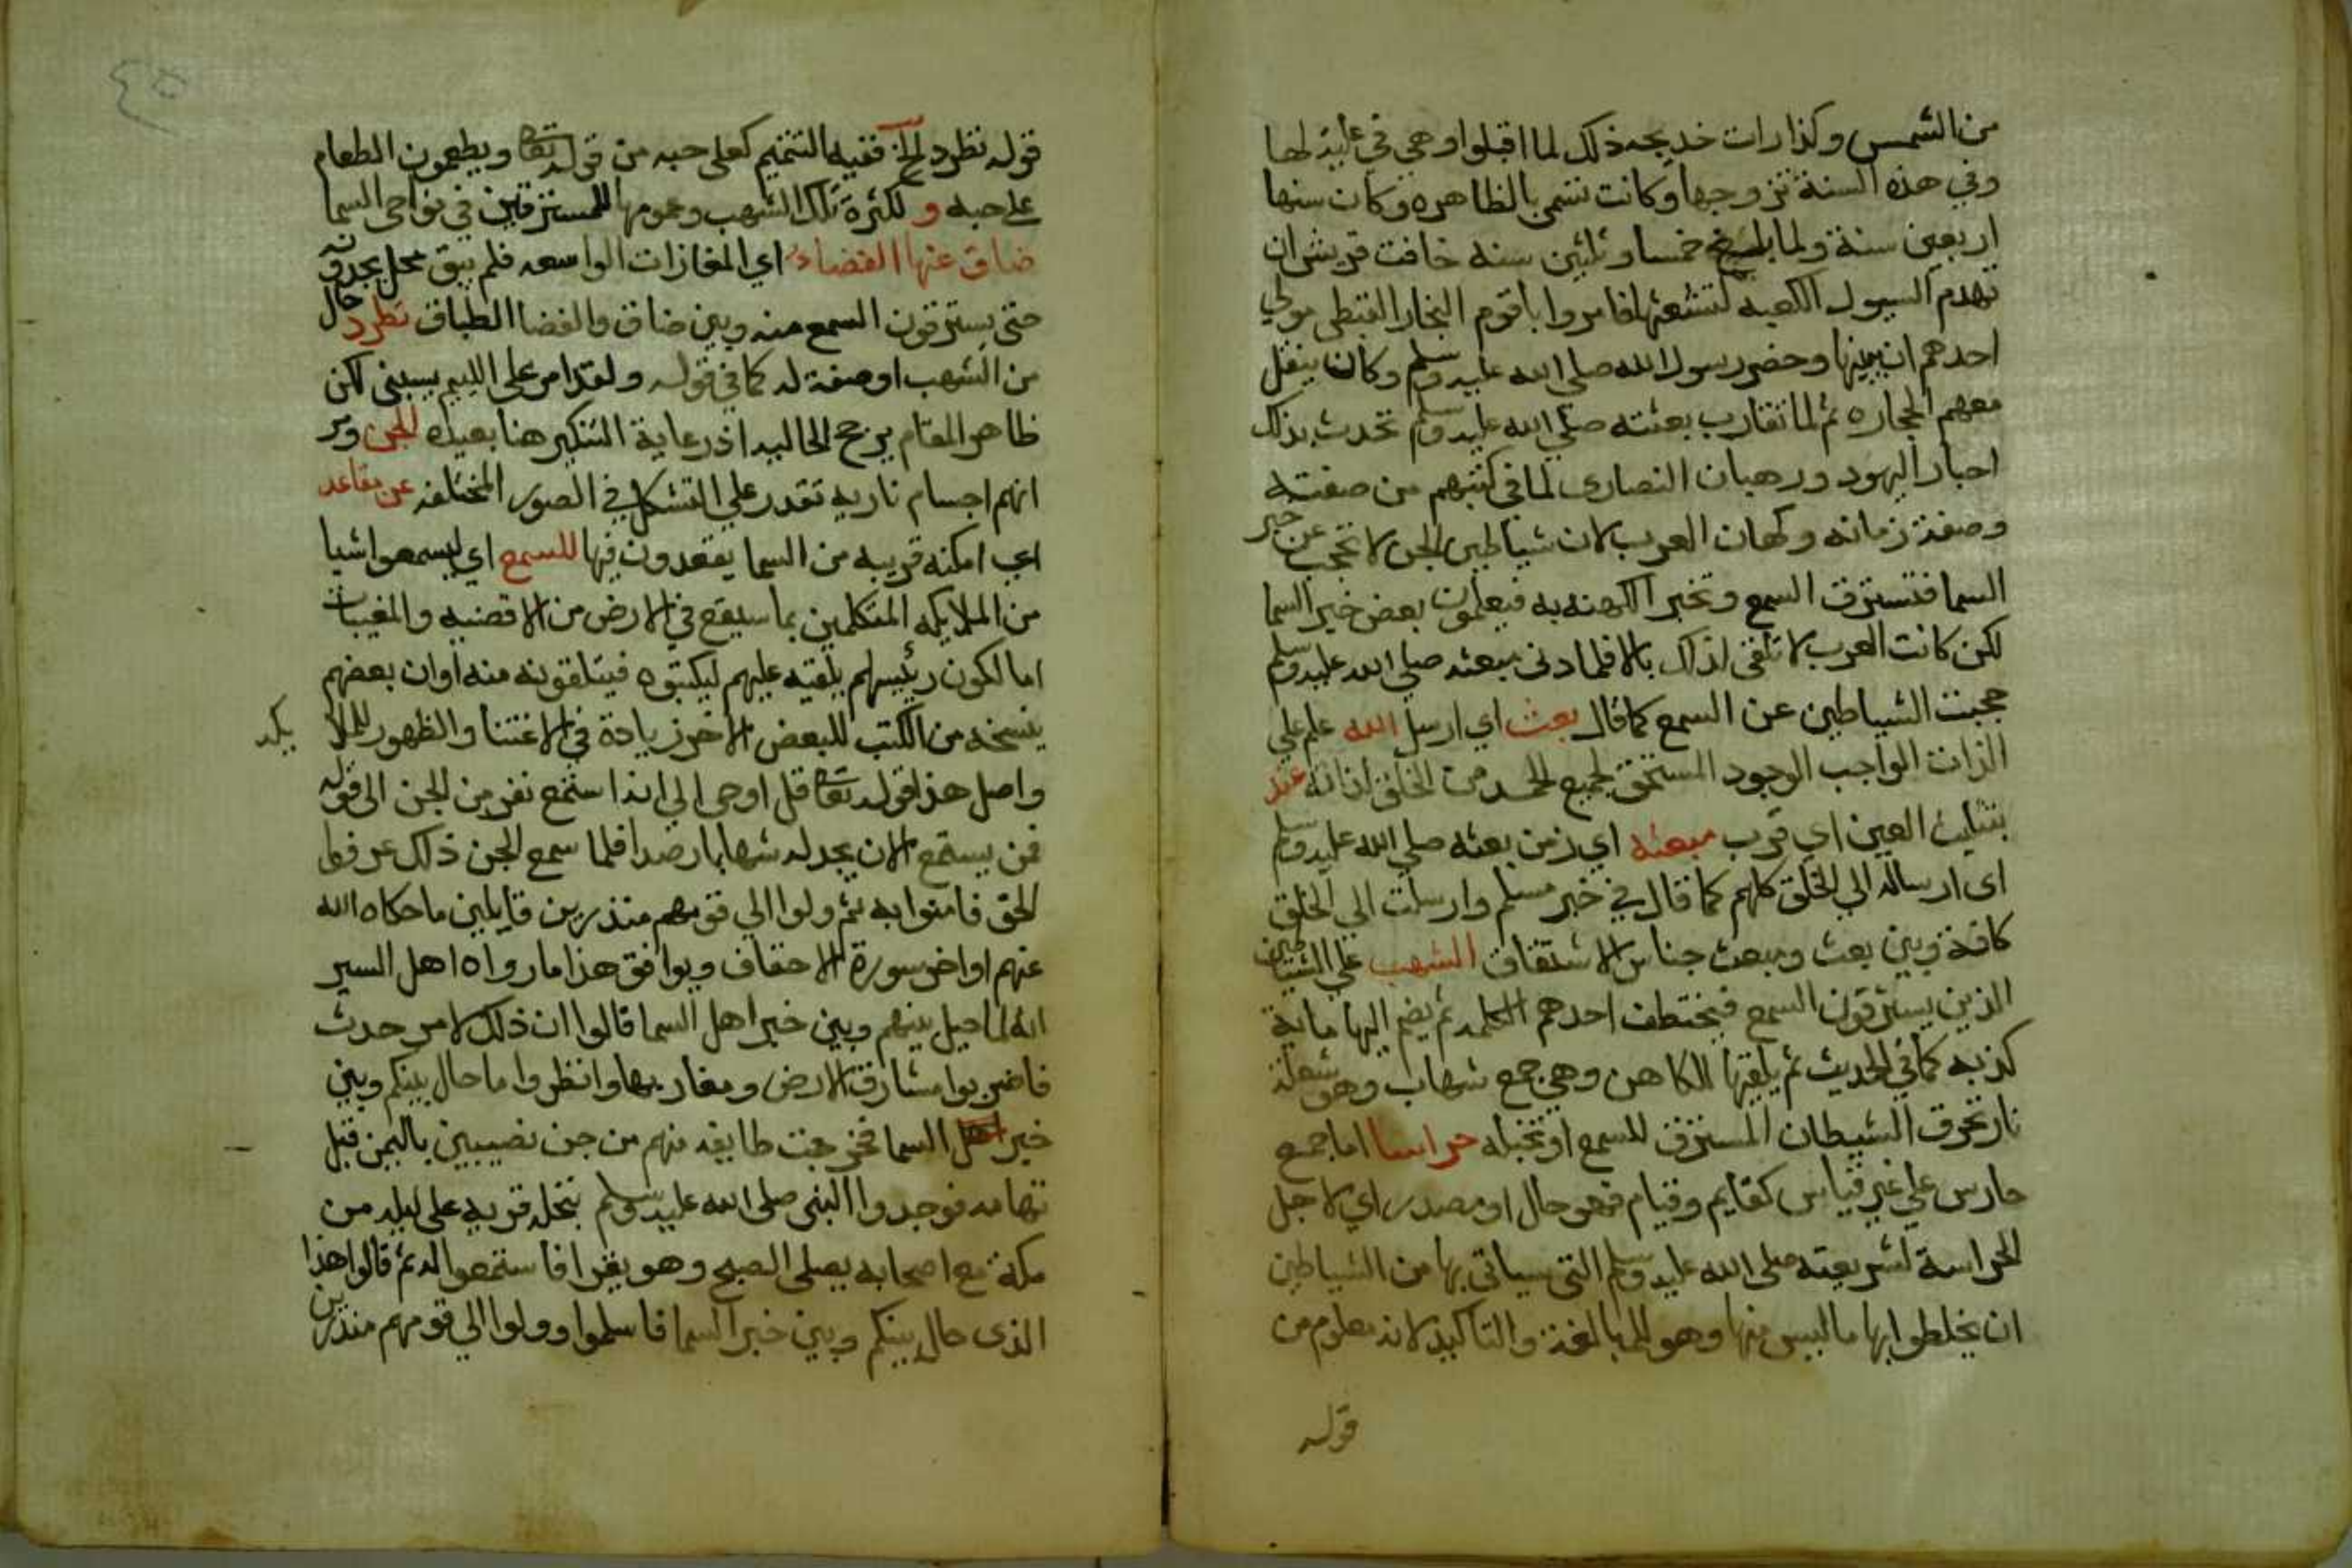 من الشمس وكذا رات خديجه ذلك لما اقبلوا وهي في علية لها
وفي هذه السنة تزوجها وكانت تسمى بالظاهره وكان سنها
اربعين سنة ولما بلغ خمسا وثلثين سنه خافت قريش ان
تهدم السيول الكعبه لتشعثها فامروا باقوم النجار القبطي مولي
احدهم ان يبنيها وحضر رسول الله صلي الله عليه وسلم وكان ينقل
معهم الحجاره ثم لما تقارب بعثته صلي الله عليه وسلم تحدث بذلك
احبار اليهود ورهبان النصارى لما في كتبهم من صفته
وصفة زمانه وكهان العرب لان شياطين الجن لا تحجب عن خبر
السما فتسترق السمع وتخبر الكهنه به فيعلمون بعض خبر السما
لكن كانت العرب لا تلقى لذلك بالا فلما دنى مبعثه صلي الله عليه وسلم
حجبت الشياطين عن السمع كما قال بعث اي ارسل الله علم علي
الذات الواجب الوجود المستحق لجميع الحمد من الخلق لذاته عند
بتثليث العين اي قرب مبعثه اي زمن بعثه صلي الله عليه وسلم
اى ارساله الي الخلق كلهم كما قال في خبر مسلم وارسلت الي الخلق
كافة وبين بعث ومبعث جناس الاشتقاق الشهب علي الشياطين
الذين يسترقون السمع فيختطف احدهم الكلمه ثم يضم اليها ماية
كذبه كما في الحديث ثم يلقيها للكاهن وهي جمع شهاب وهو شعلة
نار تحرق الشيطان المسترق للسمع او تخبله حراسا اما جمع
حارس علي غير قياس كقايم وقيام فهو حال او مصدر اي لاجل
الحراسة لشريعته صلى الله عليه وسلم التي سياتي بها من الشياطين
ان يخلطوا بها ما ليس منها وهو للمبالغة والتاكيد لانه معلوم من
قوله
٤٥
قوله تطرد الجن ففيه التتميم كعلى حبه من قوله تعالى ويطعمون الطعام
على حبه و لكثرة تلك الشهب وعمومها للمسترقين في نواحى السما
ضاق عنها الفضاء اي المفازات الواسعه فلم يبق محل يجدونه
حتى يسترقون السمع منه وبين ضاق والفضا الطباق تطرد حال
من الشهب او صفة له كما في قوله ولقد امر على الليم يسبنى لكن
ظاهر المقام يرجح الحاليه اذ رعاية التنكير هنا بعيده الجن ومر
انهم اجسام ناريه تقدر علي التشكل في الصور المختلفه عن مقاعد
اي امكنه قريبه من السما يقعدون فيها للسمع اي ليسمعوا شيا
من الملايكه المتكلمين بما سيقع في الارض من الاقضيه والمغيبات
اما لكون رئيسهم يلقيه عليهم ليكتبوه فيتلقونه منه او ان بعضهم
ينسخه من الكتب للبعض الاخر زيادة في الاعتنا والظهور للملا يكه
واصل هذا قوله تعالى قل اوحى الي انه استمع نفر من الجن الى قوله
فمن يستمع الان يجد له شهابا رصدا فلما سمع الجن ذلك عرفوا
الحق فامنوا به ثم ولوا الي قومهم منذرين قايلين ما حكاه الله
عنهم اواخر سورة الاحقاف ويوافق هذا ما رواه اهل السير
انه لما حيل بينهم وبين خبر اهل السما قالوا ان ذلك لامر حدث
فاضربوا مشارق الارض ومغاربها وانظروا ما حال بينكم وبين
خبر اهل السما فخرجت طايفه منهم من جن نصيبين باليمن قبل
تهامه فوجدوا النبى صلى الله عليه وسلم بنخله قريه على ليله من
مكة مع اصحابه يصلى الصبح وهو يقرا فاستمعوا له ثم قالوا هذا
الذى حال بينكم وبين خبر السما فاسلموا وولوا الي قومهم منذرين